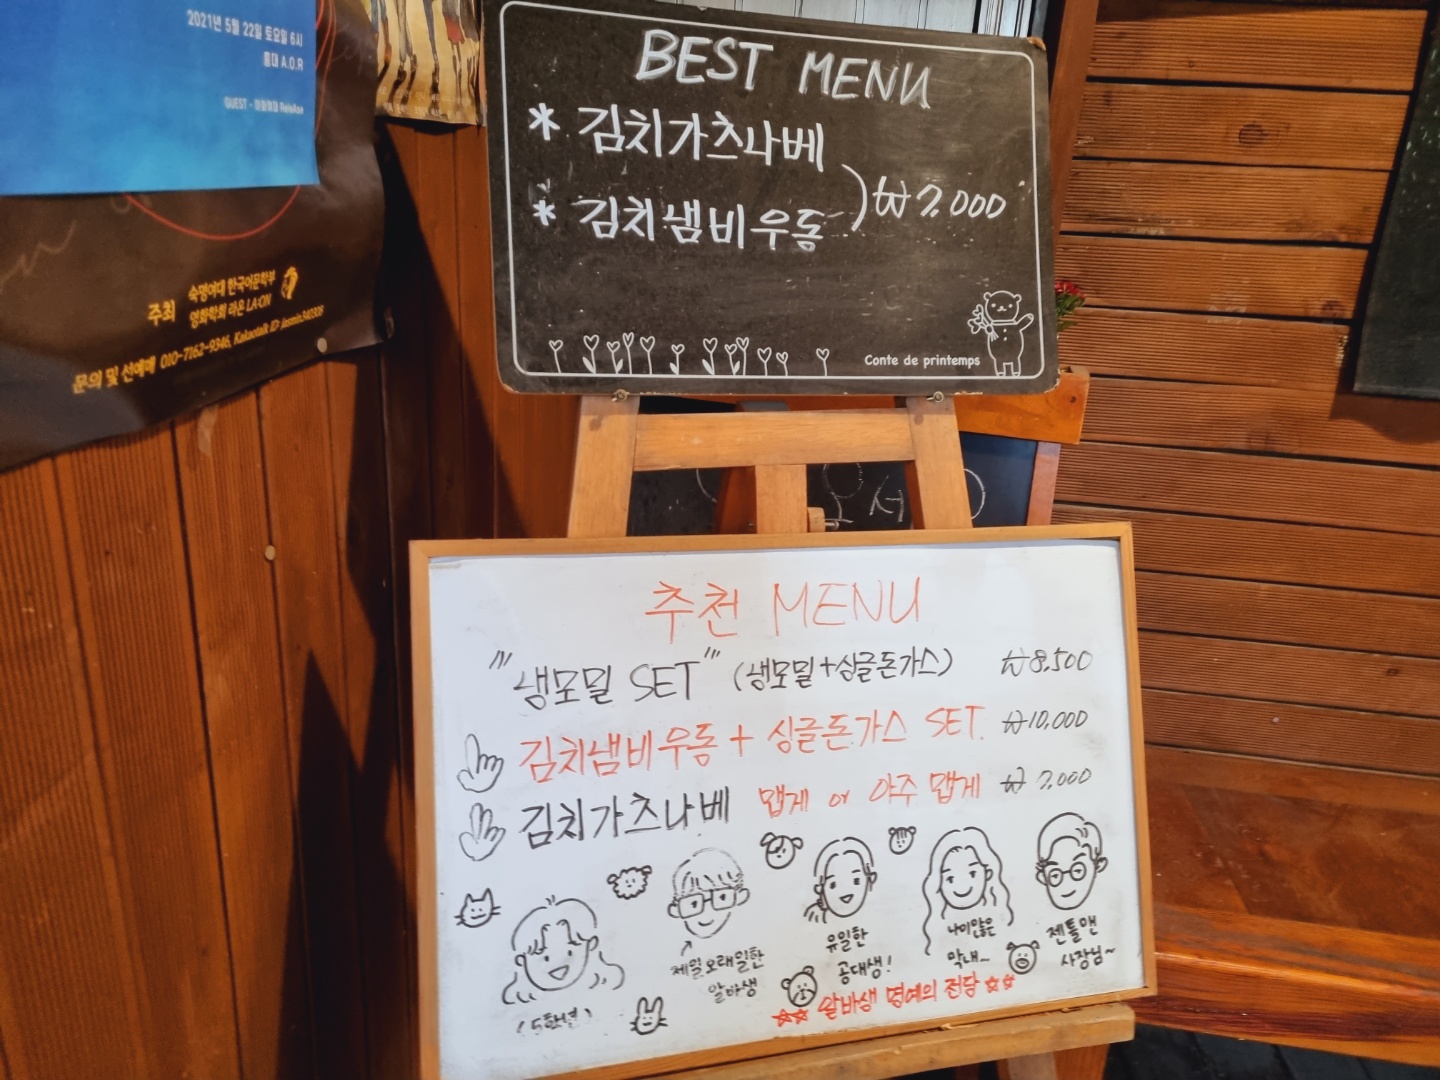 2021년 5월 22일 토요일 6시
홍대 A.O.R
주최 숙명여대 한국어문학부
영화학회 라온 LA:ON
문의 및 선예매 010-7162-9346, Kakaotalk ID: Jasmin340308
BEST MENU
* 김치가츠나베
* 김치냄비우동
) ₩7.000
Conte de printemps
추천 MENU
"냉모밀 SET" (냉모밀+싱글돈가스) ₩8.500
김치냄비우동 + 싱글돈가스 SET. ₩10,000
김치가츠나베 맵게 or 아주 맵게 ₩7.000
(5학년)
제일 오래일한
알바생
유일한
공대생!
나이많은
막내..
젠틀맨
사장님~
☆☆ 알바생 명예의 전당 ☆☆